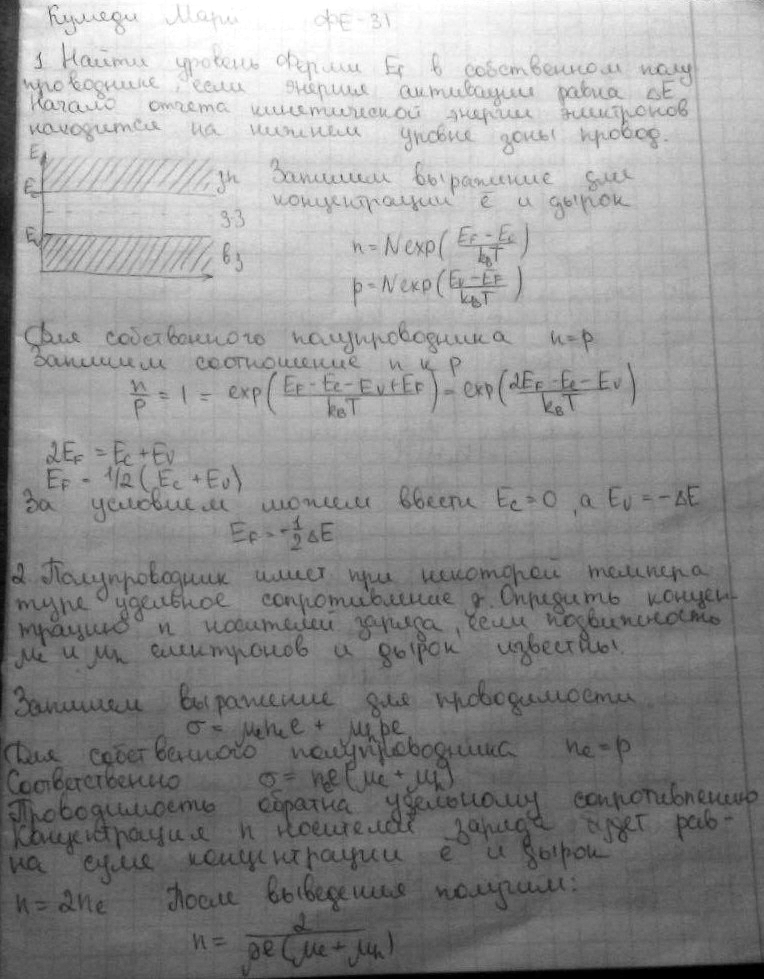 Кумеди Мари ФЕ-31
1 Найти уровень Ферми E_F в собственном полу
проводнике, если энергия активации равна ΔE
Начало отчета кинетической энергии электронов
находится на нижнем уровне зоны провод.
E
E_c зп
зз
E_v вз
Запишем выражение для
концентрации e и дырок
n = N exp((E_F - E_c)/(k_B T))
p = N exp((E_V - E_F)/(k_B T))
Для собственного полупроводника n=p
Запишем соотношение n к p
n/p = 1 = exp((E_F - E_c - E_V + E_F)/(k_B T)) = exp((2E_F - E_c - E_V)/(k_B T))
2E_F = E_c + E_V
E_F = 1/2 (E_c + E_V)
За условием можем ввести E_c = 0, а E_V = -ΔE
E_F = -1/2 ΔE
2. Полупроводник имеет при некоторой темпера
туре удельное сопротивление ρ. Опредить концен-
трацию n носителей заряда, если подвижность
μ_e и μ_h електронов и дырок известны.
Запишем выражение для проводимости
σ = μ_e n_e e + μ_h p e
Для собственного полупроводника n_e = p
Соответственно σ = n e (μ_e + μ_h)
Проводимость обратна удельному сопротивлению
Концентрация n носителей заряда будет рав-
на суме концентрации e и дырок
n = 2n_e После выведения получим:
n = 2/(ρe(μ_e + μ_h))